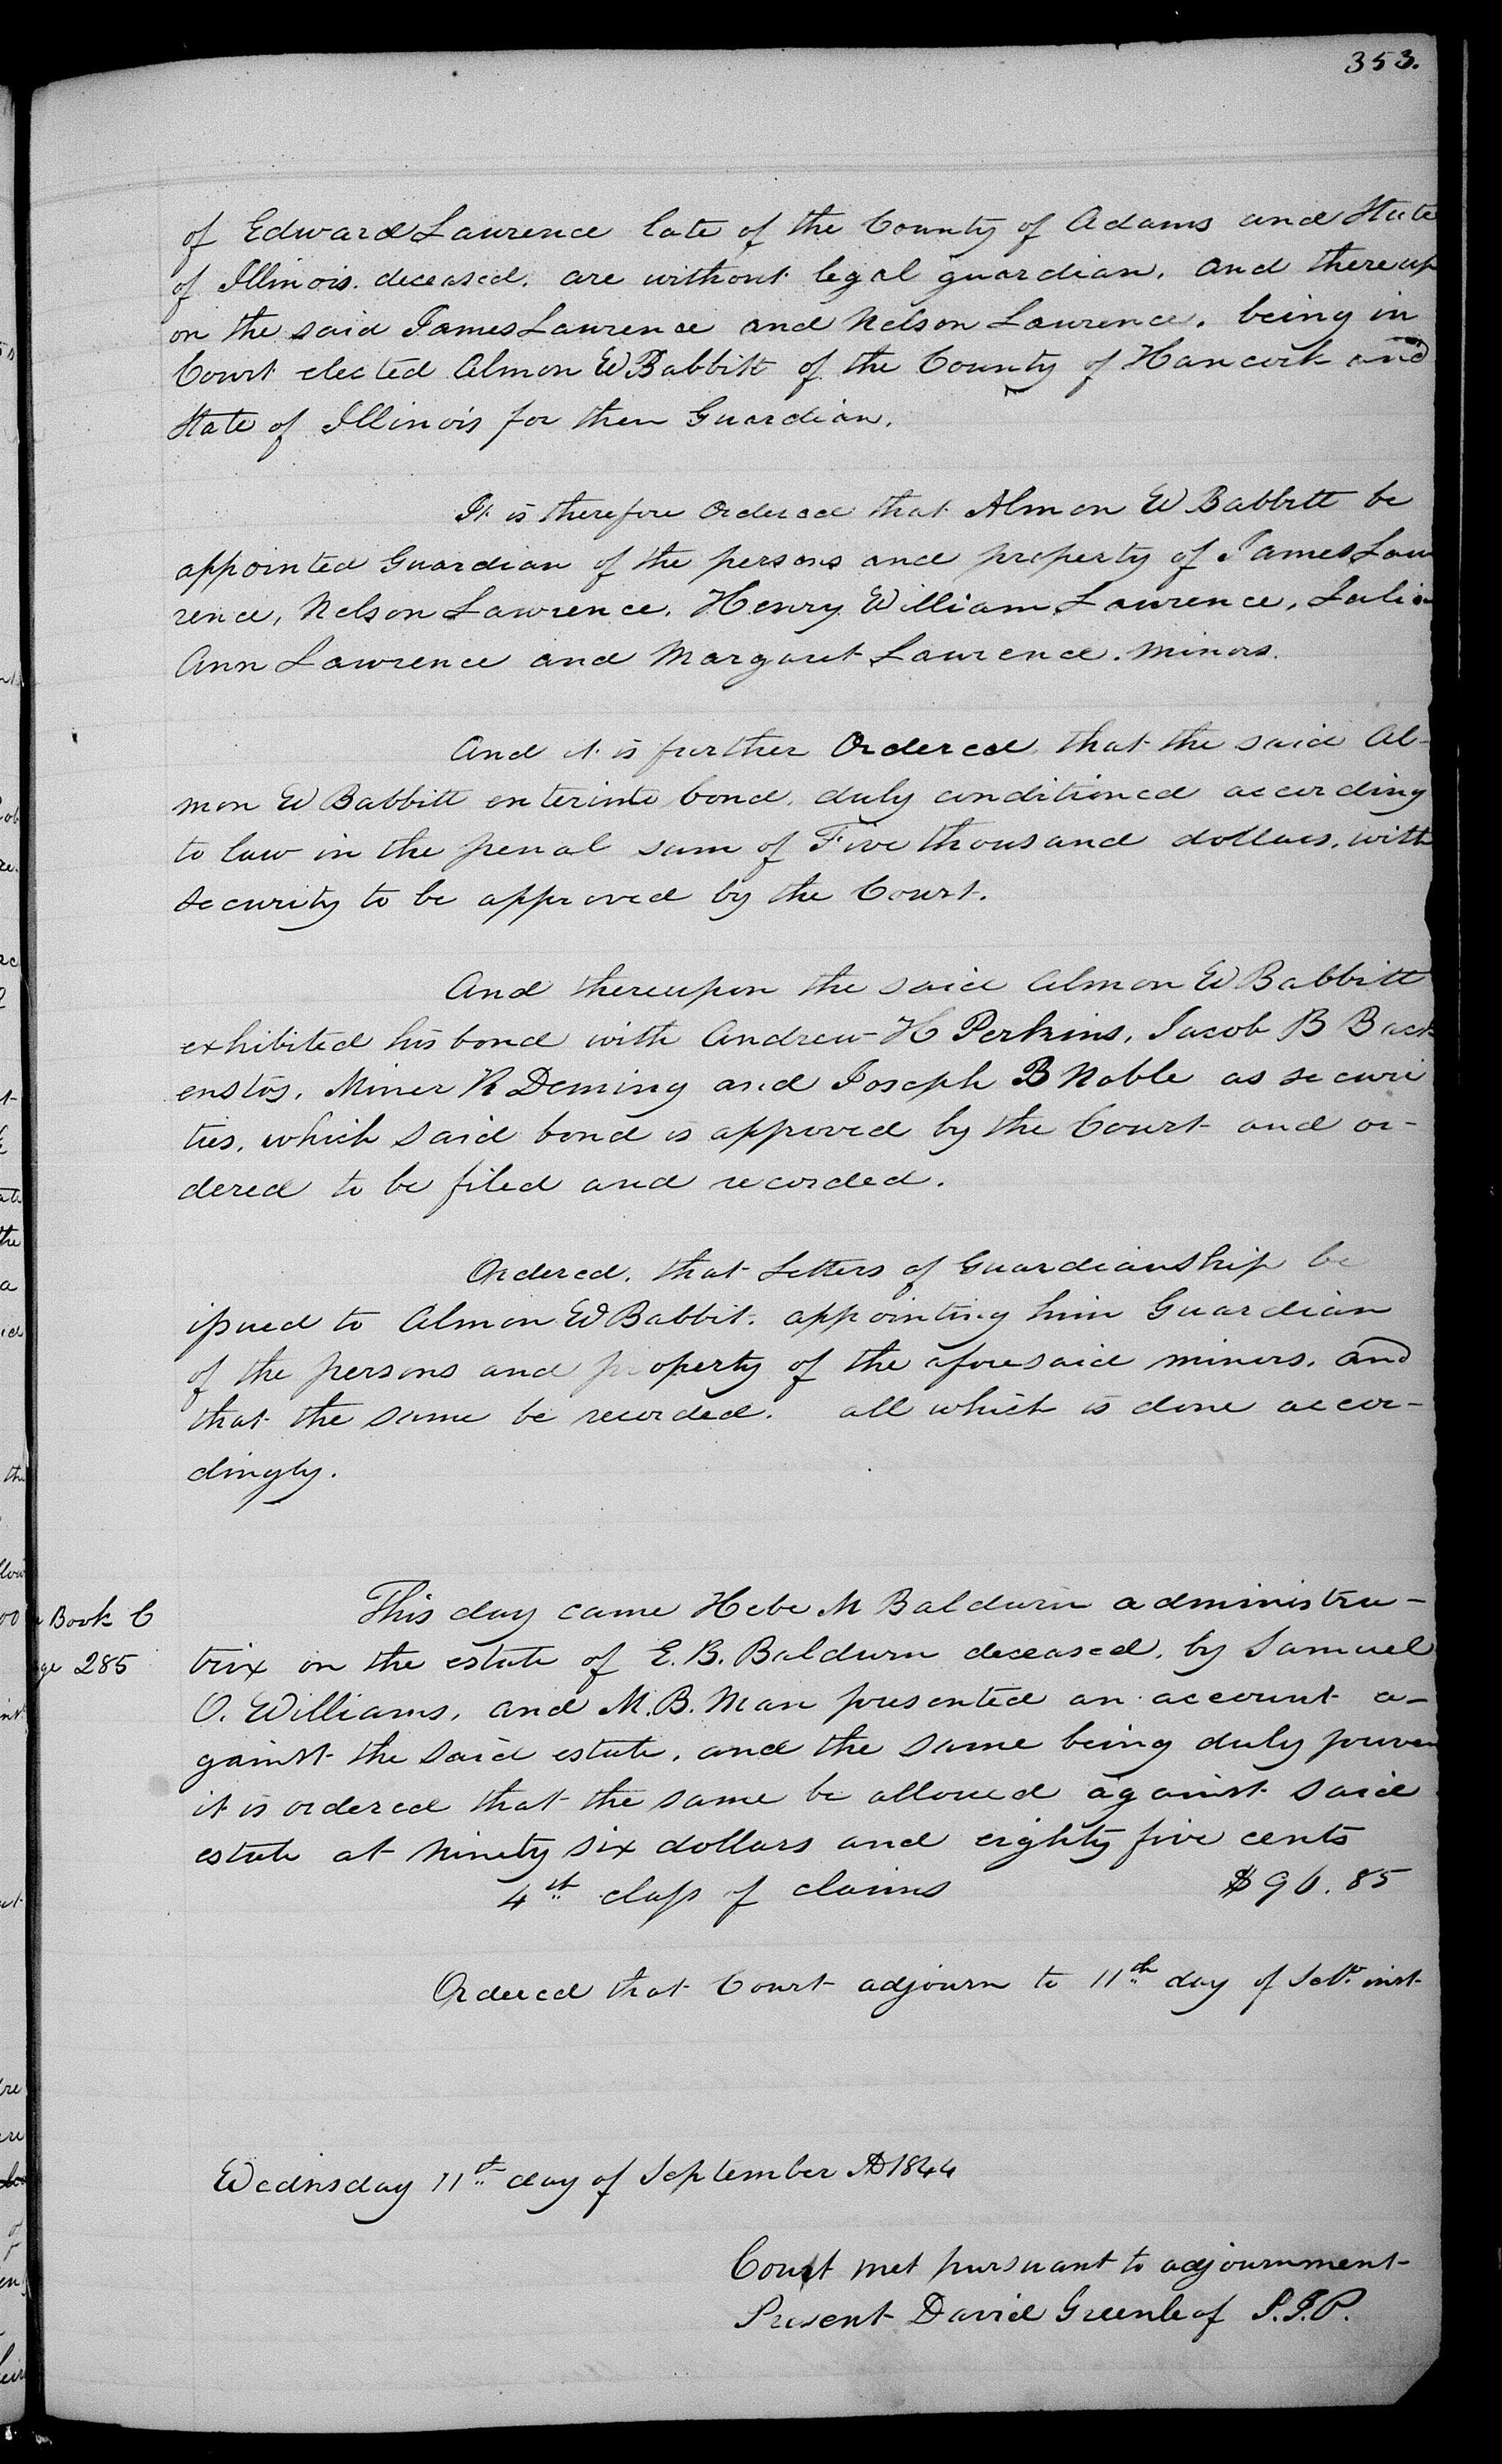 353.
of Edward Lawrence late of the County of Adams and State
of Illinois. deceased. are without legal guardian. and thereup
on the said James Lawrence and Nelson Lawrence. being in
Court elected Almon W Babbitt of the County of Hancock and
State of Illinois for their Guardian.
It is therefore Ordered that Almon W Babbitt be
appointed Guardian of the persons and property of James Law
rence, Nelson Lawrence, Henry William Lawrence, Julia
Ann Lawrence and Margaret Lawrence. minors.
And it is further Ordered, that the said Al-
mon W Babbitt enter into bond, duly conditioned according
to law in the penal sum of Five thousand dollars, with
security to be approved by the Court.
And thereupon the said Almon W Babbitt
exhibited his bond with Andrew H Perkins, Jacob B Back
enstos, Miner R Deming and Joseph B Noble as securi
ties, which said bond is approved by the Court and or-
dered to be filed and recorded.
Ordered, that Letters of Guardianship be
issued to Almon W Babbit. appointing him Guardian
of the persons and property of the aforesaid minors. and
that the same be recorded. all which is done accor-
dingly.
Book C
285
This day came Hebe M Baldwin administra-
trix on the estate of E. B. Baldwin deceased, by Samuel
O. Williams, and M. B. Man presented an account a-
gainst the said estate, and the same being duly proven
it is ordered that the same be allowed against said
estate at Ninety six dollars and eighty five cents
4th class of claims $96.85
Ordered that Court adjourn to 11th day of Sept. inst.
Wednsday 11th day of September AD 1844
Court met pursuant to adjournment
Present David Greenleaf P.J.P.